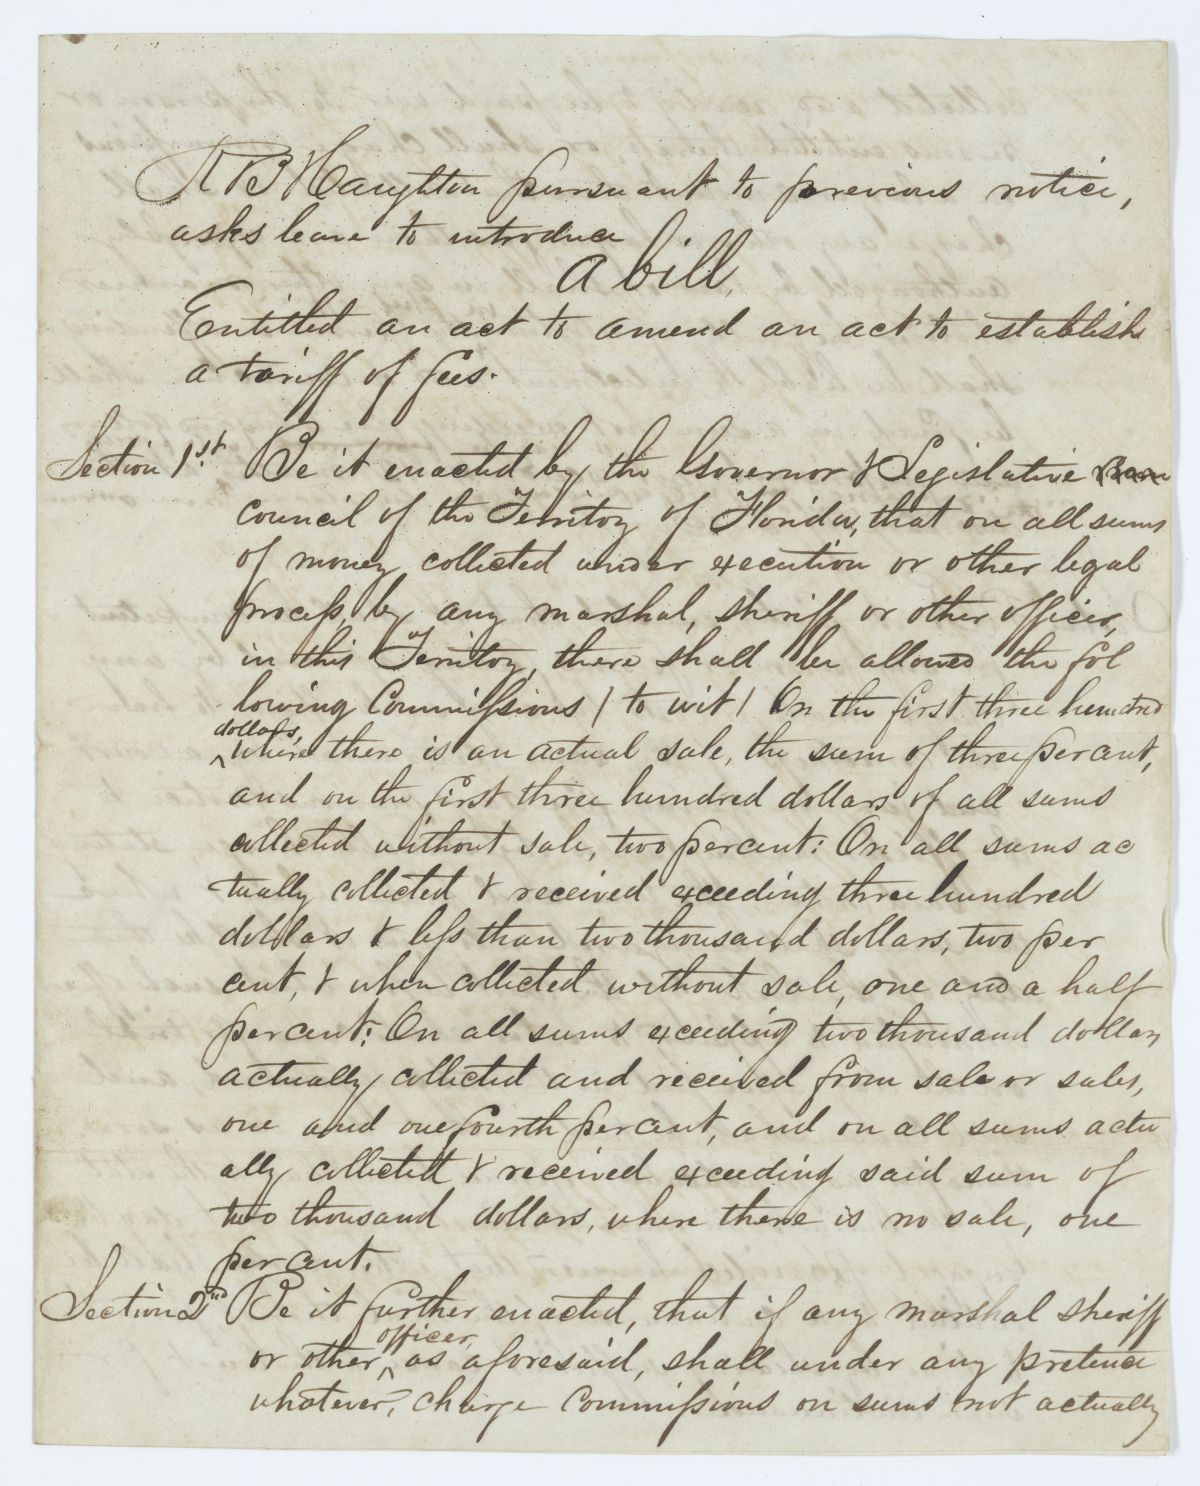 R B Haughton pursuant to previous notice,
asks leave to introduce
A bill,
Entitled an act to amend an act to establish
a tariff of fees.
Section 1st. Be it enacted by the Governor & Legislative
council of the Territoy of Florida, that on all sums
of money collected under execution or other legal
process, by any marshal, sheriff or other officer,
in this Territoy, there shall be allowed the fol
lowing Commissions / to wit / On the first three hundred
dollars,
^ where there is an actual sale, the sum of three per cent,
and on the first three hundred dollars of all sums
collected without sale, two per cent: On all sums ac
tually collected & received exceeding three hundred
dollars & less than two thousand dollars, two per
cent, & when collected without sale, one and a half
per cent: On all sums exceeding two thousand dollars
actually collected and received from sale or sales,
one and one fourth per cent, and on all sums actu
ally collected & received exceeding said sum of
two thousand dollars, where there is no sale, one
per cent.
Section 2nd Be it further enacted, that if any marshal sheriff
officer,
or other ^ as aforesaid, shall under any pretence
whatever, charge commissions on sums not actually